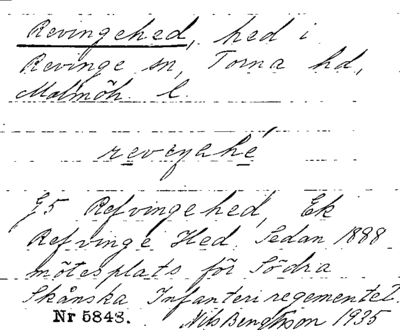 Revingehed, hed i
Revinge sn, Torna hd,
Malmöh. l.
reveŋahé
G5 Refvingehed, Ek
Refvinge Hed. Sedan 1888
mötesplats för Södra
Skånska Infanteriregementet.
Nr 5848. Nils Bengtsson 1935